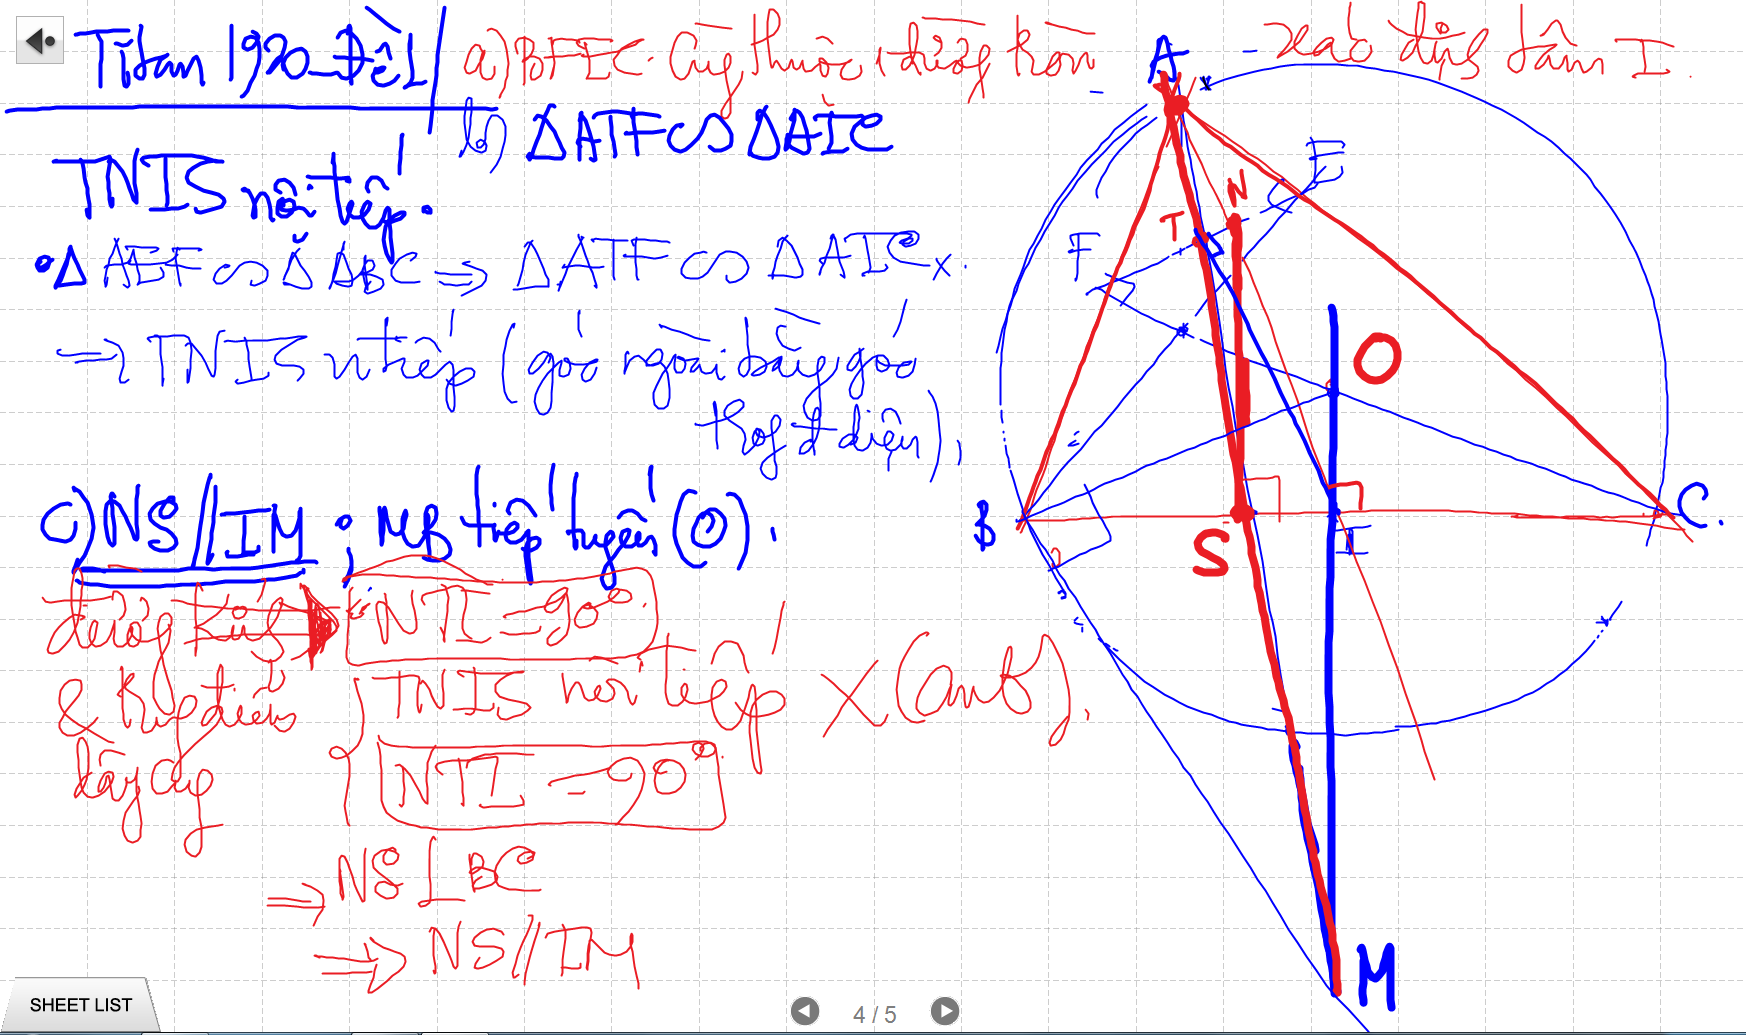 a) BFEC. Cùng thuộc 1 đường tròn - xác định tâm I.
b) ΔATF ∽ ΔAIC
TNIS nội tiếp.
• Δ AEF ∽ Δ ABC ⇒ Δ ATF ∽ Δ AIC x.
⇒ TNIS n tiếp (góc ngoài bằng góc
trog đ diện),
c) NS // IM ; MB tiếp tuyến (O).
NTI = 90°
& 
dây cug
TNIS nội tiếp X (cmb).
NTI = 90°
⇒ NS ⊥ BC
⇒ NS // IM
A
E
N
T
F
O
B
S
I
C.
M
SHEET LIST
4 / 5